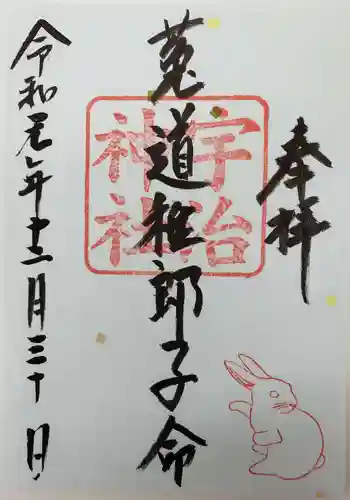 奉拝
宇治神社
菟道稚郎子命
令和元年十二月三十日